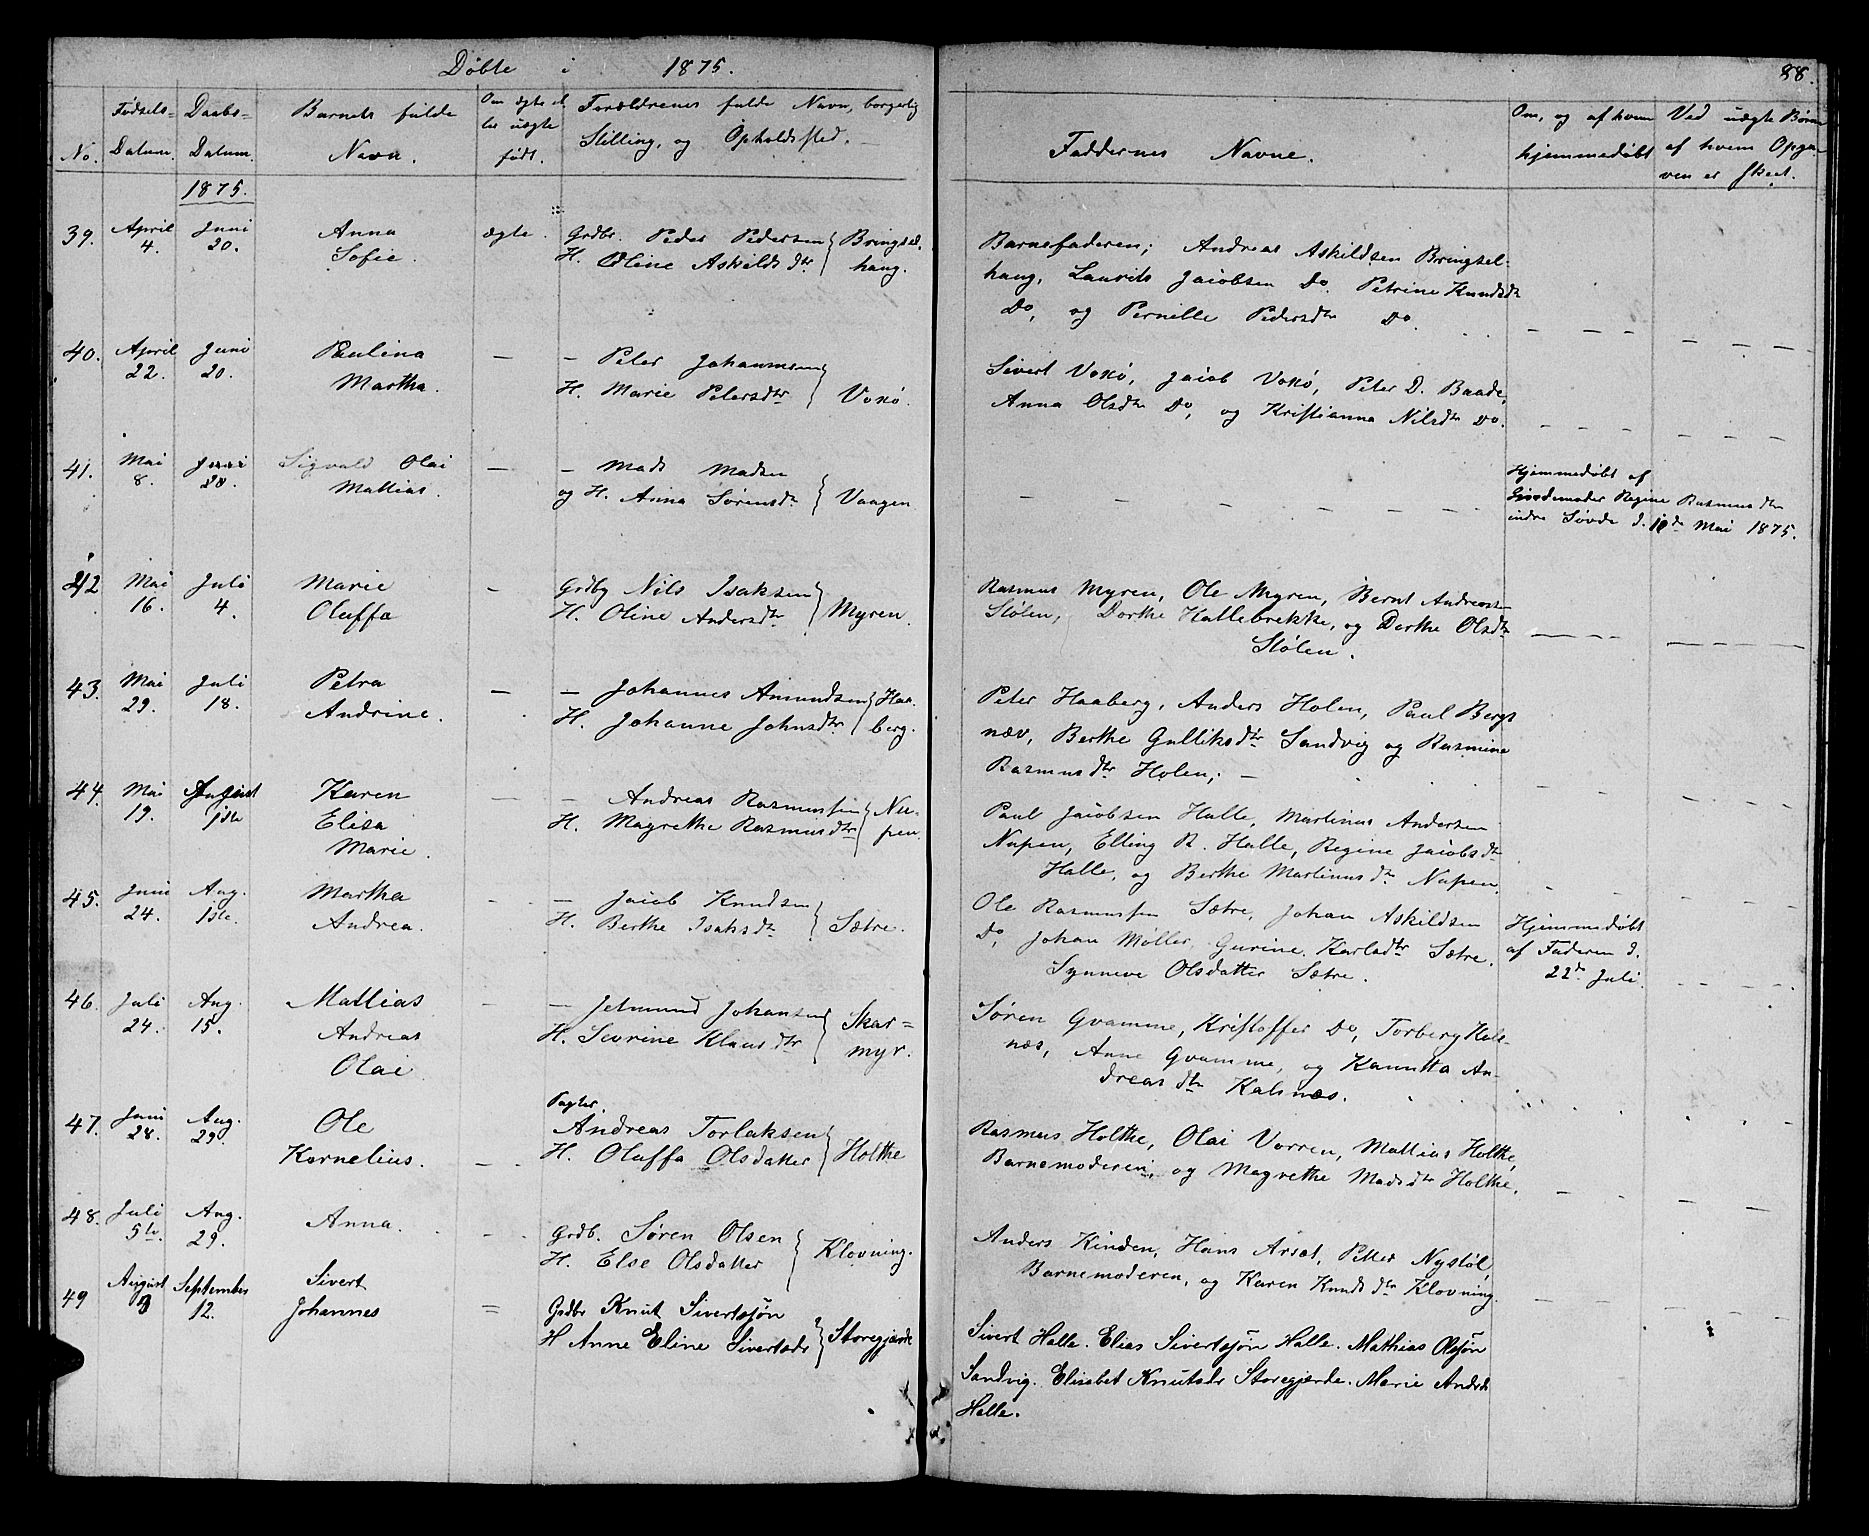 Døbte i 1875.
88.
No.
Fødsels-
Datum.
Daabs-
Datum.
Barnets fulde
Navn.
Om ægte el
ler uægte
født.
Forældrenes fulde Navn, borgerlig
Stilling, og Opholdssted.
Faddernes Navne.
Om, og af hvem
hjemmedøbt
Ved uægte Børn
af hvem Opga-
ven er skeet.
1875.
39. April 4. Juni 20. Anna
Sofie.
ægte.
Grdbr. Peder Pedersen
H. Oline Askilds dtr
Bringsel-
haug.
Barnefaderen; Andreas Askildsen Bringsel-
haug, Laurits Jacobsen Do. Petrine Knudsdtr
Do, og Pernille Pedersdtr Do.
40. April 22. Juni 20. Paulina
Martha.
— Peter Johannesen
H. Marie Petersdtr
Voxø.
Sivert Voxø, Jacob Voxø, Peter D. Baade,
Anna Olsdtr Do, og Kristianna Nilsdtr Do.
41. Mai 8. Juni 20. Sigvald Olai
Mattias.
— Mads Madsen
og H. Anna Sørensdtr
Vaagen
Hjemmedøbt af
Gjordemoder Regine Rasmusdtr
indre Søvde d. 10de Mai 1875.
42 Mai 16. Juli 4. Marie
Oluffa
Grdbr Nils Isaksen
H. Oline Andersdtr
Myren.
Rasmus Myren, Ole Myren, Bernt Andreas-
Stølen, Dorthe Hallebrekke, og Dorthe Olsdtr
Stølen.
43. Mai 29. Juli 18. Petra
Andrine.
— Johannes Amundsen
H. Johanne Johnsdtr
Haa-
berg.
Peter Haaberg, Anders Holen, Paul Bergs
næv, Berthe Gulliksdtr Sandvig og Rasmine
Rasmusdtr Holen;
44. Mai 19. August 1ste Karen
Elisa
Marie.
— Andreas Rasmussen
H. Magrethe Rasmusdtr
Nu-
pen
Paul Jacobsen Halle, Martinus Andersen
Nupen, Elling R. Halle, Regine Jacobsdtr
Halle, og Berthe Martinusdtr Nupen.
45. Juni 24. Aug. 1ste. Martha
Andrea.
— Jacob Knudsen
H. Berthe Isaksdtr
Sætre.
Ole Rasmussen Sætre, Johan Askildsen
Do, Johan Møller, Gurine Karlsdtr Sætre.
Synneve Olsdatter Sætre.
Hjemmedøbt
af Faderen d.
22de Juli.
46. Juli 24. Aug. 15. Mattias
Andreas
Olai
— Jetmund Johansen
H. Sevrine Klausdtr
Skar=
myr.
Søren Gvamme, Kristoffer Do, Torberg Kals-
næs, Anne Gvamme, og Kanutta An-
dreasdtr Kalsnæs.
47. Juni 28. Aug. 29. Ole
Kornelius.
Pagter.
Andreas Torlaksen
H. Oluffa Olsdatter
Holthe
Rasmus Holthe, Olai Vorren, Mattias Holthe,
Barnemoderen, og Magrethe Madsdtr Holthe.
48. Juli 5te. Aug. 29. Anna.
Grdb. Søren Olsen
H. Else Olsdatter
Klovning.
Anders Kinden, Hans Arset, Petter Nystøl,
Barnemoderen, og Karen Knudsdtr Klovning.
49 August 3 September 12. Sivert
Johannes
Grdbr Knut Sivertsøn
H Anne Eline Sivertsdr
Storegjærde
Sivert Halle. Elias Sivertsøn Halle. Mathias Olsøn
Sandvig. Elisabet Knutsdr Storegjærde. Marie Andrdr
Halle.